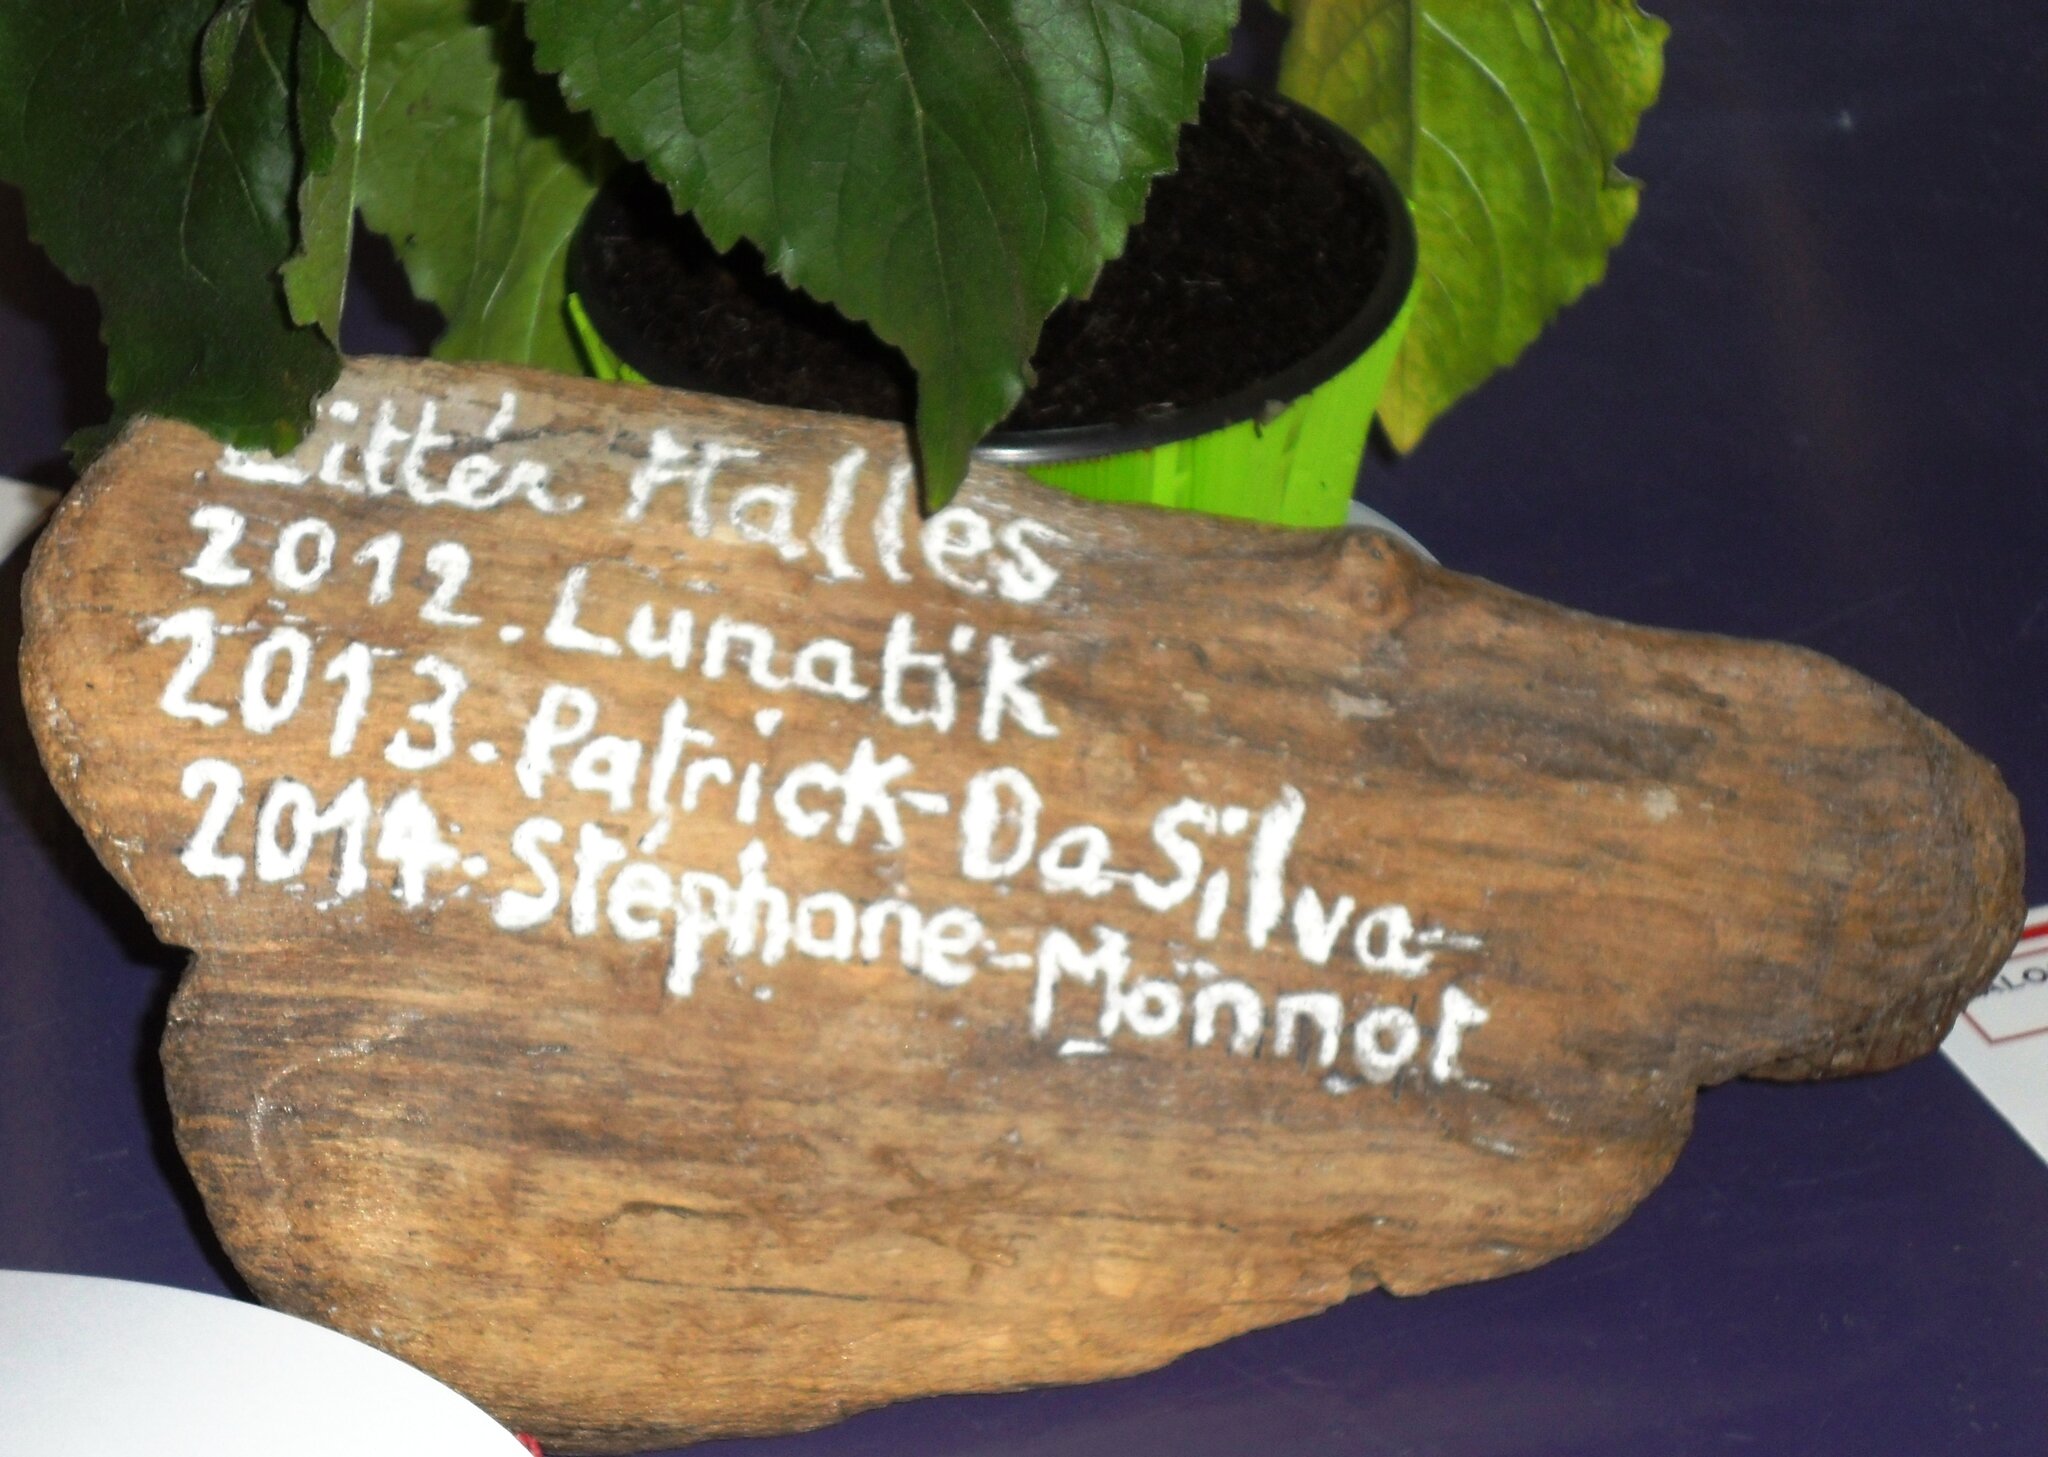 Littér Halles
2012. Lunatik
2013. Patrick-Da Silva-
2014. Stéphane-Monnot